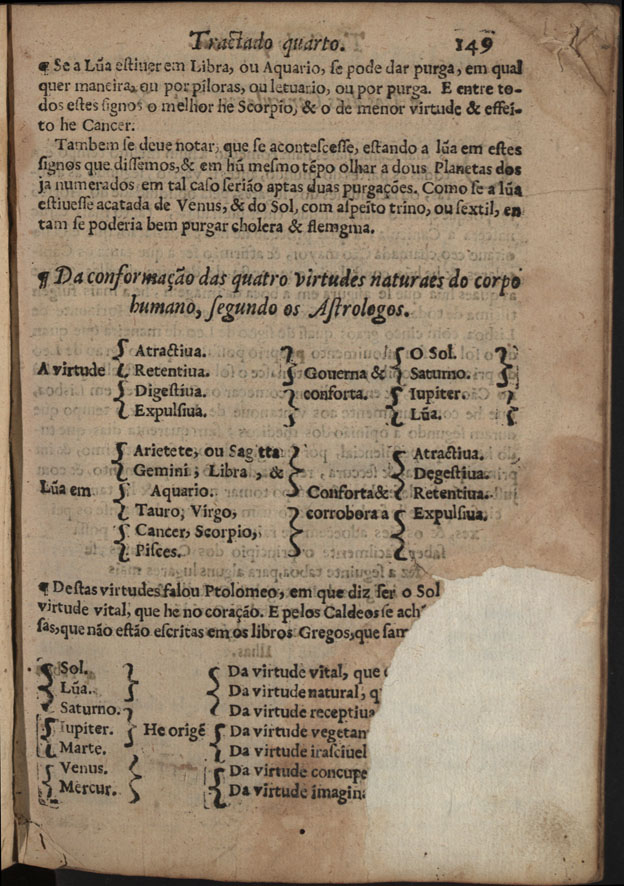 Tractado quarto. 149
¶ Se a Lũa estiuer em Libra, ou Aquario, se pode dar purga, em qual
quer maneira, ou por piloras, ou letuario, ou por purga. E entre to-
dos estes signos o melhor he Scorpio, & o de menor virtude & effei-
to he Cancer.
Tambem se deue notar, que se acontescesse, estando a lũa em estes
signos que dissemos, & em hũ mesmo tẽpo olhar a dous Planetas dos
ja numerados em tal caso serião aptas duas purgações. Como se a lũa
estiuesse acatada de Venus, & do Sol, com aspeito trino, ou sextil, en
tam se poderia bem purgar cholera & flemgma.
¶ Da conformação das quatro virtudes naturaes do corpo
humano, segundo os Astrologos.
Atractiua. O Sol.
A virtude Retentiua. Gouerna & Saturno.
Digestiua. conforta. Iupiter.
Expulsiua. Lũa.
Arietete, ou Sagitta Atractiua.
Gemini, Libra, & Degestiua.
Lũa em Aquario. Conforta & Retentiua.
Tauro, Virgo, corrobora a Expulsiua.
Cancer, Scorpio,
Pisces.
¶ Destas virtudes falou Ptolomeo, em que diz ser o Sol
virtude vital, que he no coração. E pelos Caldeos se ach
sas, que não estão escritas em os libros Gregos, que sam
Sol. Da virtude vital, que
Lũa. Da virtude natural, q
Saturno. Da virtude receptiua
Iupiter. He origẽ Da virtude vegetan
Marte. Da virtude irasciuel
Venus. Da virtude concupe
Mercur. Da virtude imagina